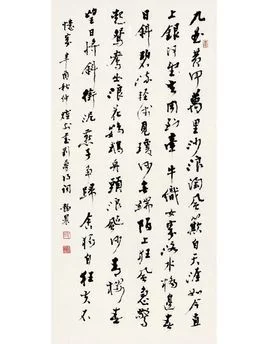 九曲黃河萬里沙浪淘風簸自天涯如今直
上銀河去同到牽牛織女家洛水橋邊春
日斜碧流清淺見瓊沙無端陌上狂風急驚
起鴛鴦出浪花鸚鵡洲頭浪颭沙青樓春
望日將斜銜泥燕子爭歸舍獨自狂夫不
憶家 辛酉秋仲 書劉夢得詞